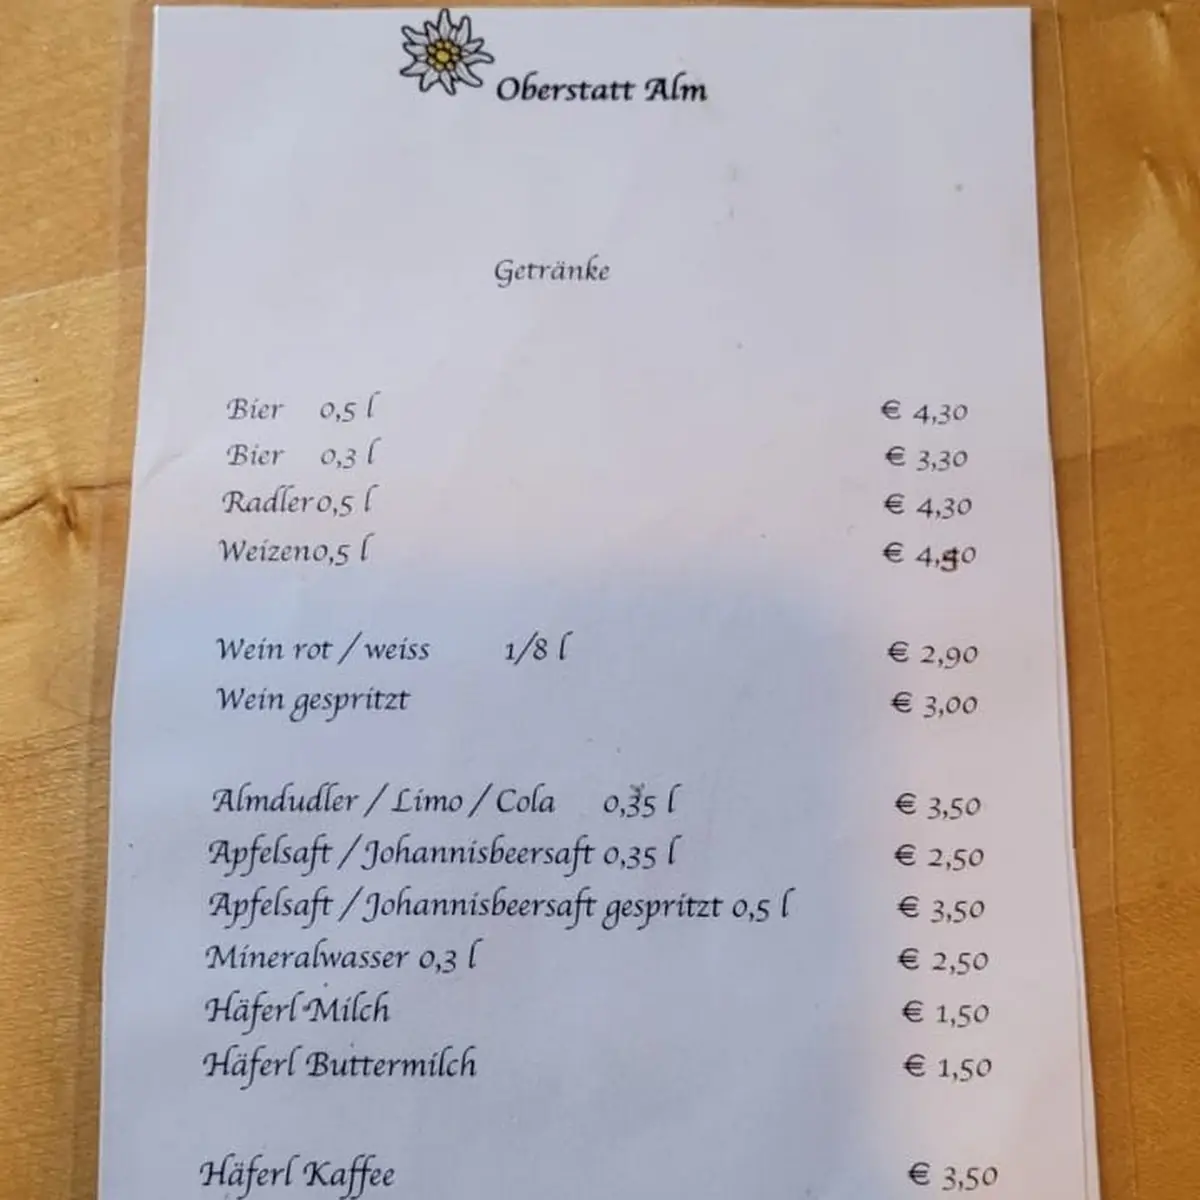 Oberstatt Alm
Getränke
Bier 0,5 l € 4,30
Bier 0,3 l € 3,30
Radler 0,5 l € 4,30
Weizen 0,5 l €
Wein rot / weiss 1/8 l € 2,90
Wein gespritzt € 3,00
Almdudler / Limo / Cola 0,35 l € 3,50
Apfelsaft / Johannisbeersaft 0,35 l € 2,50
Apfelsaft / Johannisbeersaft gespritzt 0,5 l € 3,50
Mineralwasser 0,3 l € 2,50
Häferl Milch € 1,50
Häferl Buttermilch € 1,50
Häferl Kaffee € 3,50